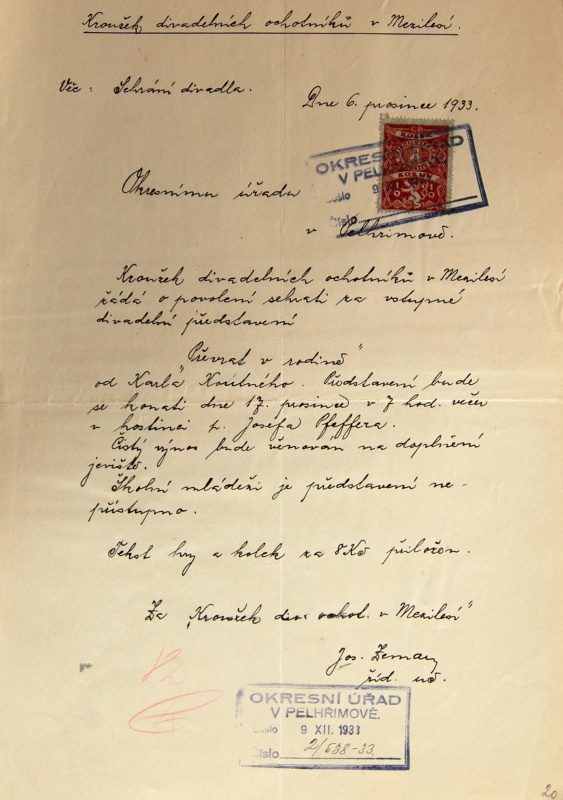 Kroužek divadelních ochotníků v Mezilesí.
Věc: Sehrání divadla.
Dne 6. prosince 1933.
OKRESNÍ ÚŘAD
V PELHŘ
došlo 9
Číslo
KOLEK
Okresnímu úřadu
v Pelhřimově.
Kroužek divadelních ochotníků v Mezilesí
žádá o povolení sehrati za vstupné
divadelní představení
"Převrat v rodině"
od Karla Koutného. Představení bude
se konati dne 17. prosince v 7 hod. večer
v hostinci p. Josefa Pfeffera.
Čistý výnos bude věnován na doplnění
jeviště.
Školní mládeži je představení ne-
přístupno.
Tekst hry a kolek za 8Kč přiložen.
Za "Kroužek div. ochot. v Mezilesí"
Jos. Zeman
říd. uč.
OKRESNÍ ÚŘAD
V PELHŘIMOVĚ.
Došlo 9 XII. 1933
Číslo 2/538-33.
20